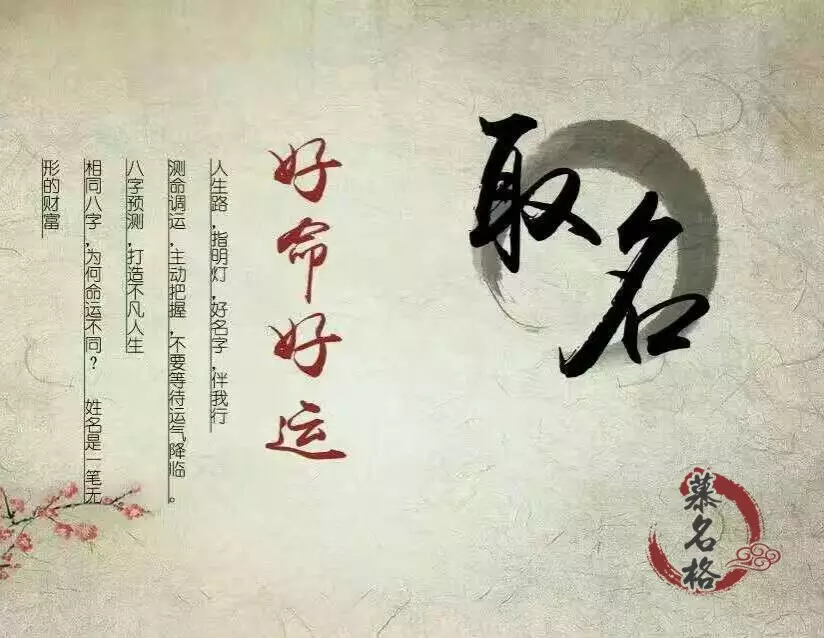 取名
好命好运
人生路，指明灯，好名字，伴我行
测命调运，主动把握，不要等待运气降临。
八字预测，打造不凡人生
相同八字，为何命运不同？ 姓名是一笔无
形的财富
慕名格